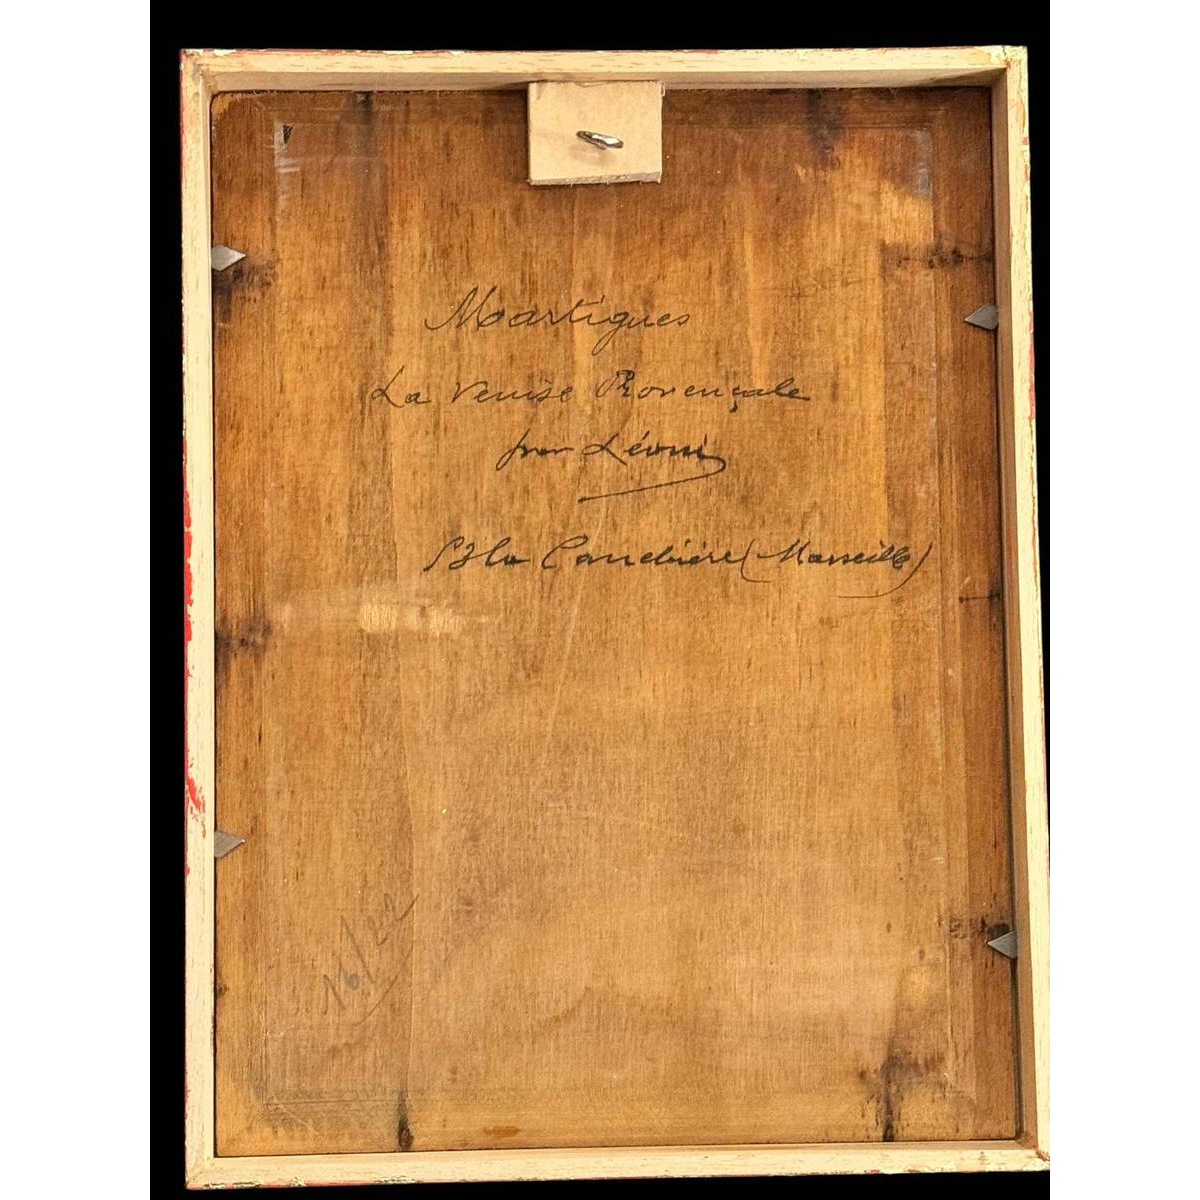 Martigues
La Venise Provençale
par Léoni
Bld Canebière (Marseille)
16/22